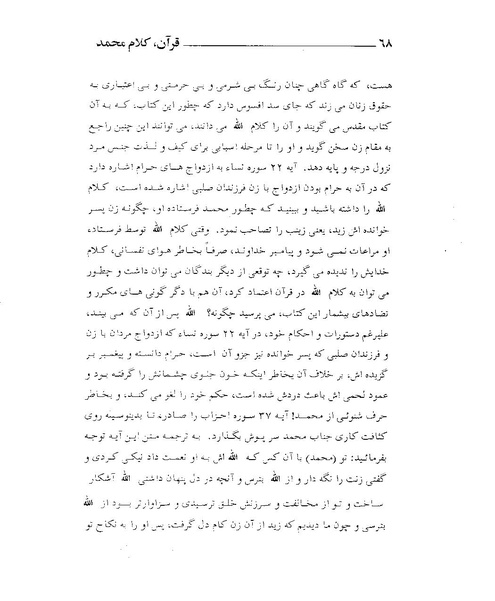 ۶۸ قرآن، کلام محمد
هست، که گاه گاهی چنان رنگ بی شرمی و بی حرمتی و بی اعتباری به
حقوق زنان می زند که جای سد افسوس دارد که چطور این کتاب، که به آن
کتاب مقدس می گویند و آن را کلام الله می دانند، می توانند این چنین راجع
به مقام زن سخن گوید و او را تا مرحله اسبابی برای کیف و لذت جنس مرد
نزول درجه و پایه دهد. آیه ۲۲ سوره نساء به ازدواج های حرام اشاره دارد
که در آن به حرام بودن ازدواج با زن فرزندان صلبی اشاره شده است، کلام
الله را داشته باشید و ببینید که چطور محمد فرستاده او، چگونه زن پسر
خوانده اش زید، یعنی زینب را تصاحب نمود. وقتی کلام الله توسط فرستاده
او مراعات نمی شود و پیامبر خداوند، صرفاً بخاطر هوای نفسانی، کلام
خدایش را ندیده می گیرد، چه توقعی از دیگر بندگان می توان داشت و چطور
می توان به کلام الله در قرآن اعتماد کرد، آن هم با دگر گونی های مکرر و
تضادهای بیشمار این کتاب، می پرسید چگونه؟ الله پس از آن که می بیند،
علیرغم دستورات و احکام خود، در آیه ۲۲ سوره نساء که ازدواج مردان با زن
و فرزندان صلبی که پسر خوانده نیز جزو آن است، حرام دانسته و پیغمبر بر
گزیده اش، بر خلاف آن بخاطر اینکه خون جلوی چشمانش را گرفته بود و
عمود لحمی اش باعث دردش شده است، حکم خود را لغو می کند، و بخاطر
حرف شنوئی از محمد! آیه ۳۷ سوره احزاب را صادره تا بدینوسیله روی
کثافت کاری جناب محمد سر پوش بگذارد. به ترجمه متن این آیه توجه
بفرمائید: تو (محمد) با آن کس که الله اش به او نعمت داد نیکی کردی و
گفتی زنت را نگه دار و از الله بترس و آنچه در دل پنهان داشتی الله آشکار
ساخت و تو از مخالفت و سرزنش خلق ترسیدی و سزاوارتر بود از الله
بترسی و چون ما دیدیم که زید از آن زن کام دل گرفت، پس او را به نکاح تو